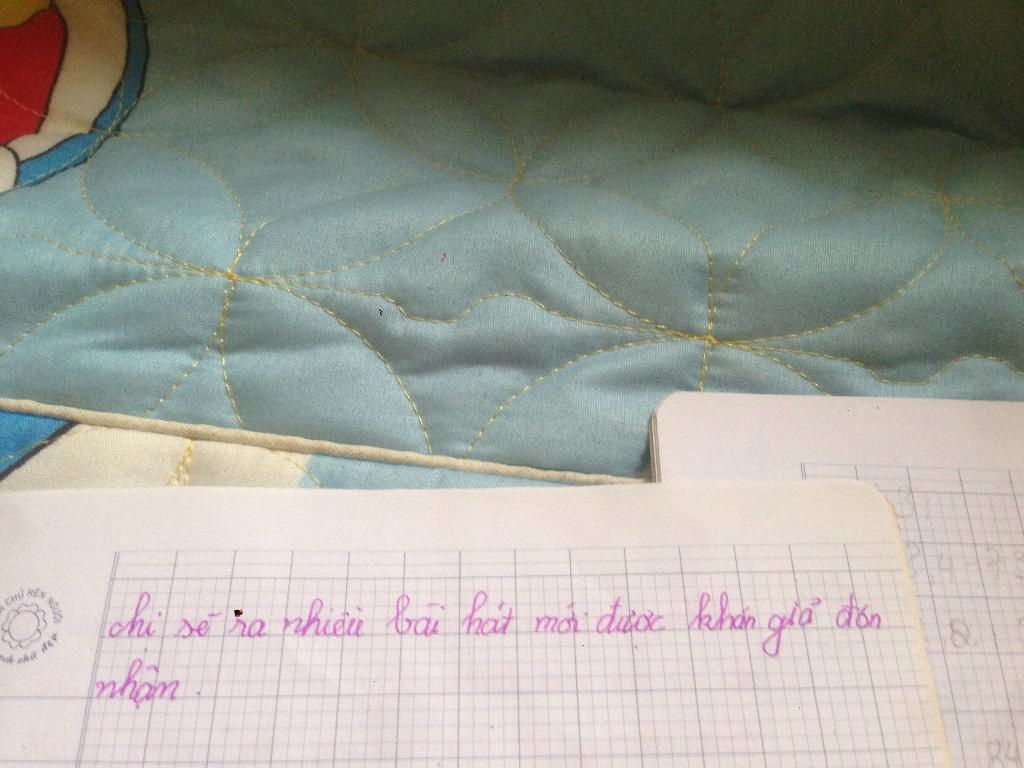 chị sẽ ra nhiều bài hát mới được khán giả đón
nhận.
CHỮ RÈN NGƯỜI
chữ đẹp
24